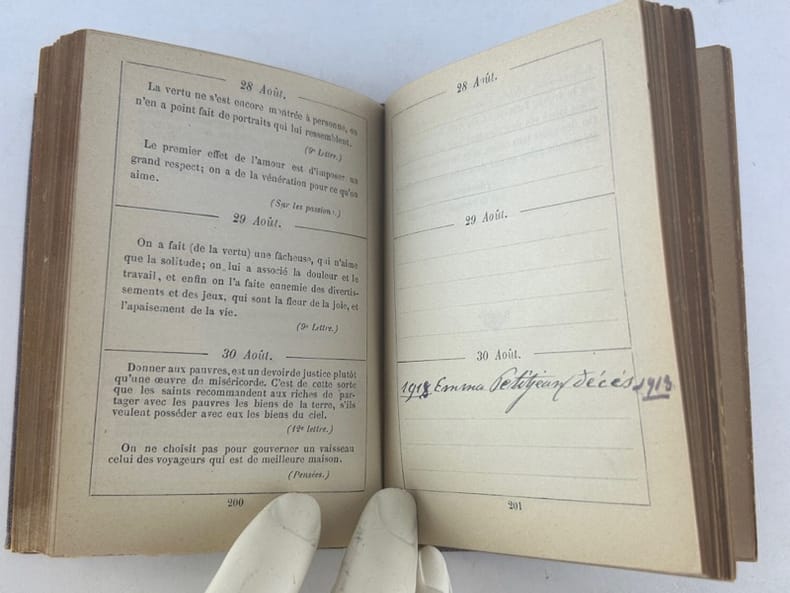 28 Août.
La vertu ne s'est encore montrée à personne, on
n'en a point fait de portraits qui lui ressemblent.
(9e Lettre.)
Le premier effet de l'amour est d'imposer un
grand respect; on a de la vénération pour ce qu'on
aime.
(Sur les passions.)
29 Août.
On a fait (de la vertu) une fâcheuse, qui n'aime
que la solitude; on lui a associé la douleur et le
travail, et enfin on l'a faite ennemie des divertis-
sements et des jeux, qui sont la fleur de la joie, et
l'apaisement de la vie.
(9e Lettre.)
30 Août.
Donner aux pauvres, est un devoir de justice plutôt
qu'une œuvre de miséricorde. C'est de cette sorte
que les saints recommandent aux riches de par-
tager avec les pauvres les biens de la terre, s'ils
veulent posséder avec eux les biens du ciel.
(12e lettre.)
On ne choisit pas pour gouverner un vaisseau
celui des voyageurs qui est de meilleure maison.
(Pensées.)
200
28 Août.
29 Août.
30 Août.
Emma Petitjean décés 1913
201